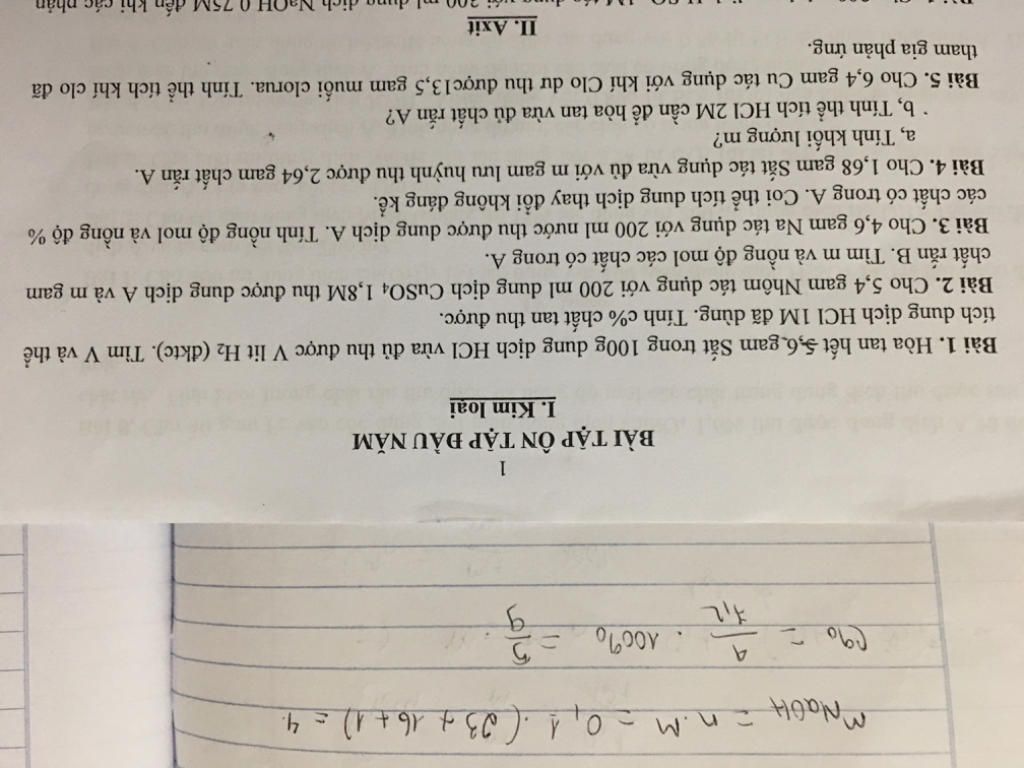 m NaOH = n.M = 0,1 . (23 + 16 + 1) = 4.
C% = 4/7,2 . 100% = 5/9
1
BÀI TẬP ÔN TẬP ĐẦU NĂM
I. Kim loại
Bài 1. Hòa tan hết 5,6 gam Sắt trong 100g dung dịch HCl vừa đủ thu được V lit H₂ (đktc). Tìm V và thể
tích dung dịch HCl 1M đã dùng. Tính c% chất tan thu được.
Bài 2. Cho 5,4 gam Nhôm tác dụng với 200 ml dung dịch CuSO₄ 1,8M thu được dung dịch A và m gam
chất rắn B. Tìm m và nồng độ mol các chất có trong A.
Bài 3. Cho 4,6 gam Na tác dụng với 200 ml nước thu được dung dịch A. Tính nồng độ mol và nồng độ %
các chất có trong A. Coi thể tích dung dịch thay đổi không đáng kể.
Bài 4. Cho 1,68 gam Sắt tác dụng vừa đủ với m gam lưu huỳnh thu được 2,64 gam chất rắn A.
a, Tính khối lượng m?
b, Tính thể tích HCl 2M cần để hòa tan vừa đủ chất rắn A?
Bài 5. Cho 6,4 gam Cu tác dụng với khí Clo dư thu được13,5 gam muối clorua. Tính thể tích khí clo đã
tham gia phản ứng.
II. Axit
dung dịch NaOH 0,75M đến khi các phản